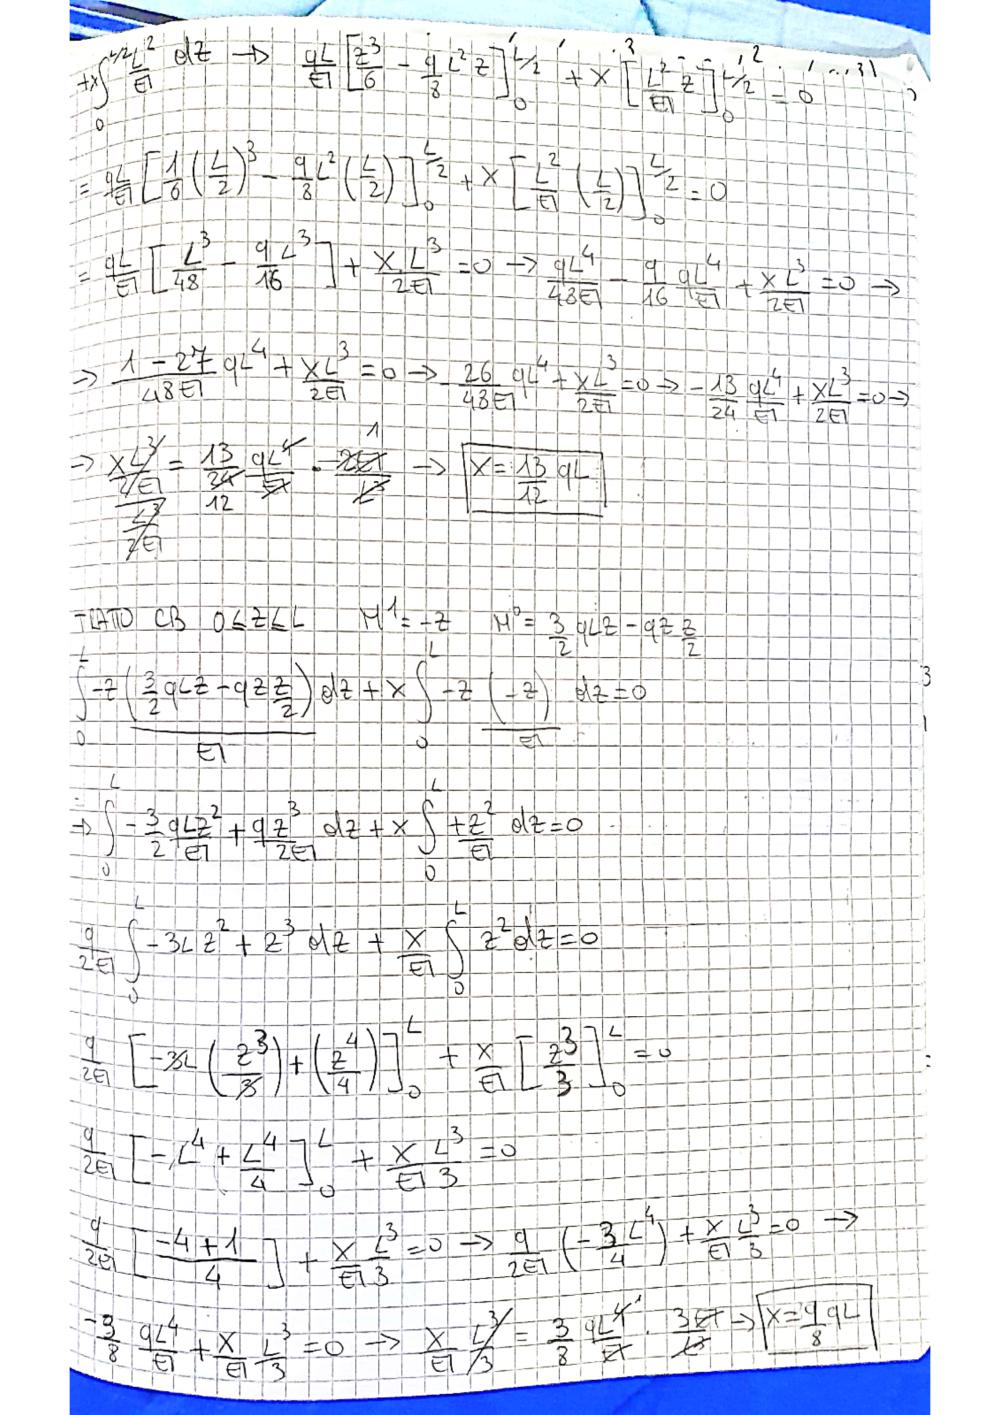 +x∫₀^{L/2} L²/EI dz → qL/EI [z³/6 - 9/8 L² z]₀^{L/2} + x [L²/EI z]₀^{L/2} = 0
= qL/EI [1/6 (L/2)³ - 9/8 L² (L/2)]₀^{L/2} + x [L²/EI (L/2)]₀^{L/2} = 0
= qL/EI [L³/48 - 9L³/16] + xL³/2EI = 0 → qL⁴/48EI - 9/16 qL⁴/EI + xL³/2EI = 0 →
→ (1-27)/48EI qL⁴ + xL³/2EI = 0 → -26/48EI qL⁴ + xL³/2EI = 0 → -13/24 qL⁴/EI + xL³/2EI = 0 →
→ (xL³/2EI)/(L³/2EI) = 13/24 qL⁴/EI · 2EI/L³ → x = 13/12 qL
TRATTO CB 0≤z≤L M¹ = -z M⁰ = 3/2 qLz - qz z/2
∫₀^L -z (3/2 qLz - qz z/2)/EI dz + x ∫₀^L -z (-z)/EI dz = 0
→ ∫₀^L -3/2 qLz²/EI + qz³/2EI dz + x ∫₀^L +z²/EI dz = 0
q/2EI ∫₀^L -3Lz² + z³ dz + x/EI ∫₀^L z² dz = 0
q/2EI [-3L (z³/3) + (z⁴/4)]₀^L + x/EI [z³/3]₀^L = 0
q/2EI [-L⁴ + L⁴/4]₀^L + x/EI L³/3 = 0
q/2EI [(-4+1)/4] + x/EI L³/3 = 0 → q/2EI (-3/4 L⁴) + x/EI L³/3 = 0 →
-3/8 qL⁴/EI + x/EI L³/3 = 0 → x/EI L³/3 = 3/8 qL⁴/EI · 3EI/L³ → x = 9/8 qL